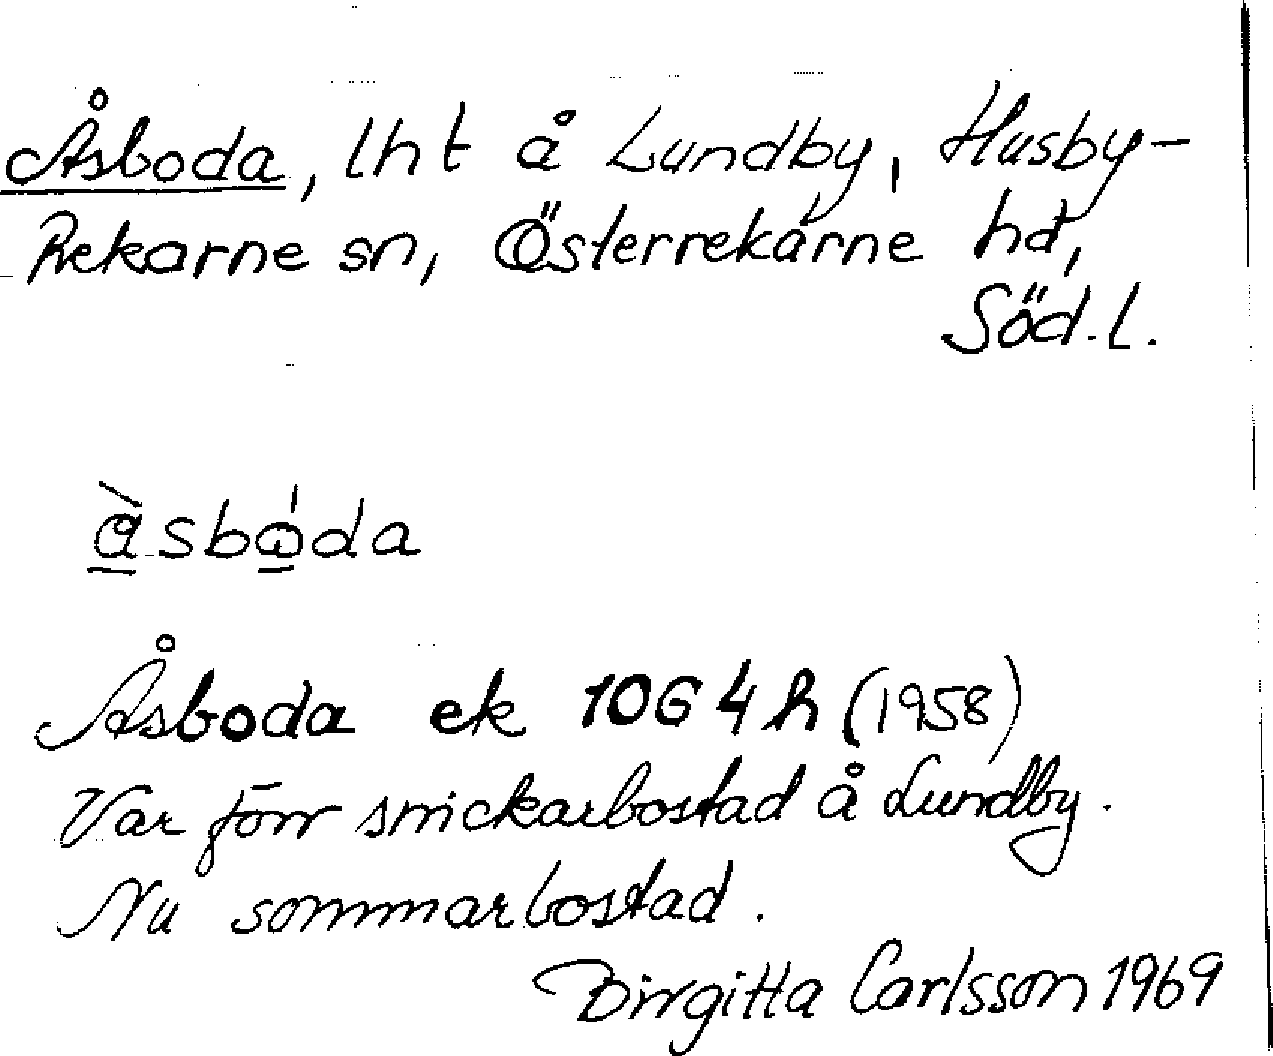 Åsboda, lht å Lundby, Husby-
Rekarne sn, Österrekarne hd,
Söd.l.
å̀sbǫ́da
Åsboda ek 10G 4h (1958)
Var förr snickarbostad å Lundby.
Nu sommarbostad.
Birgitta Carlsson 1969